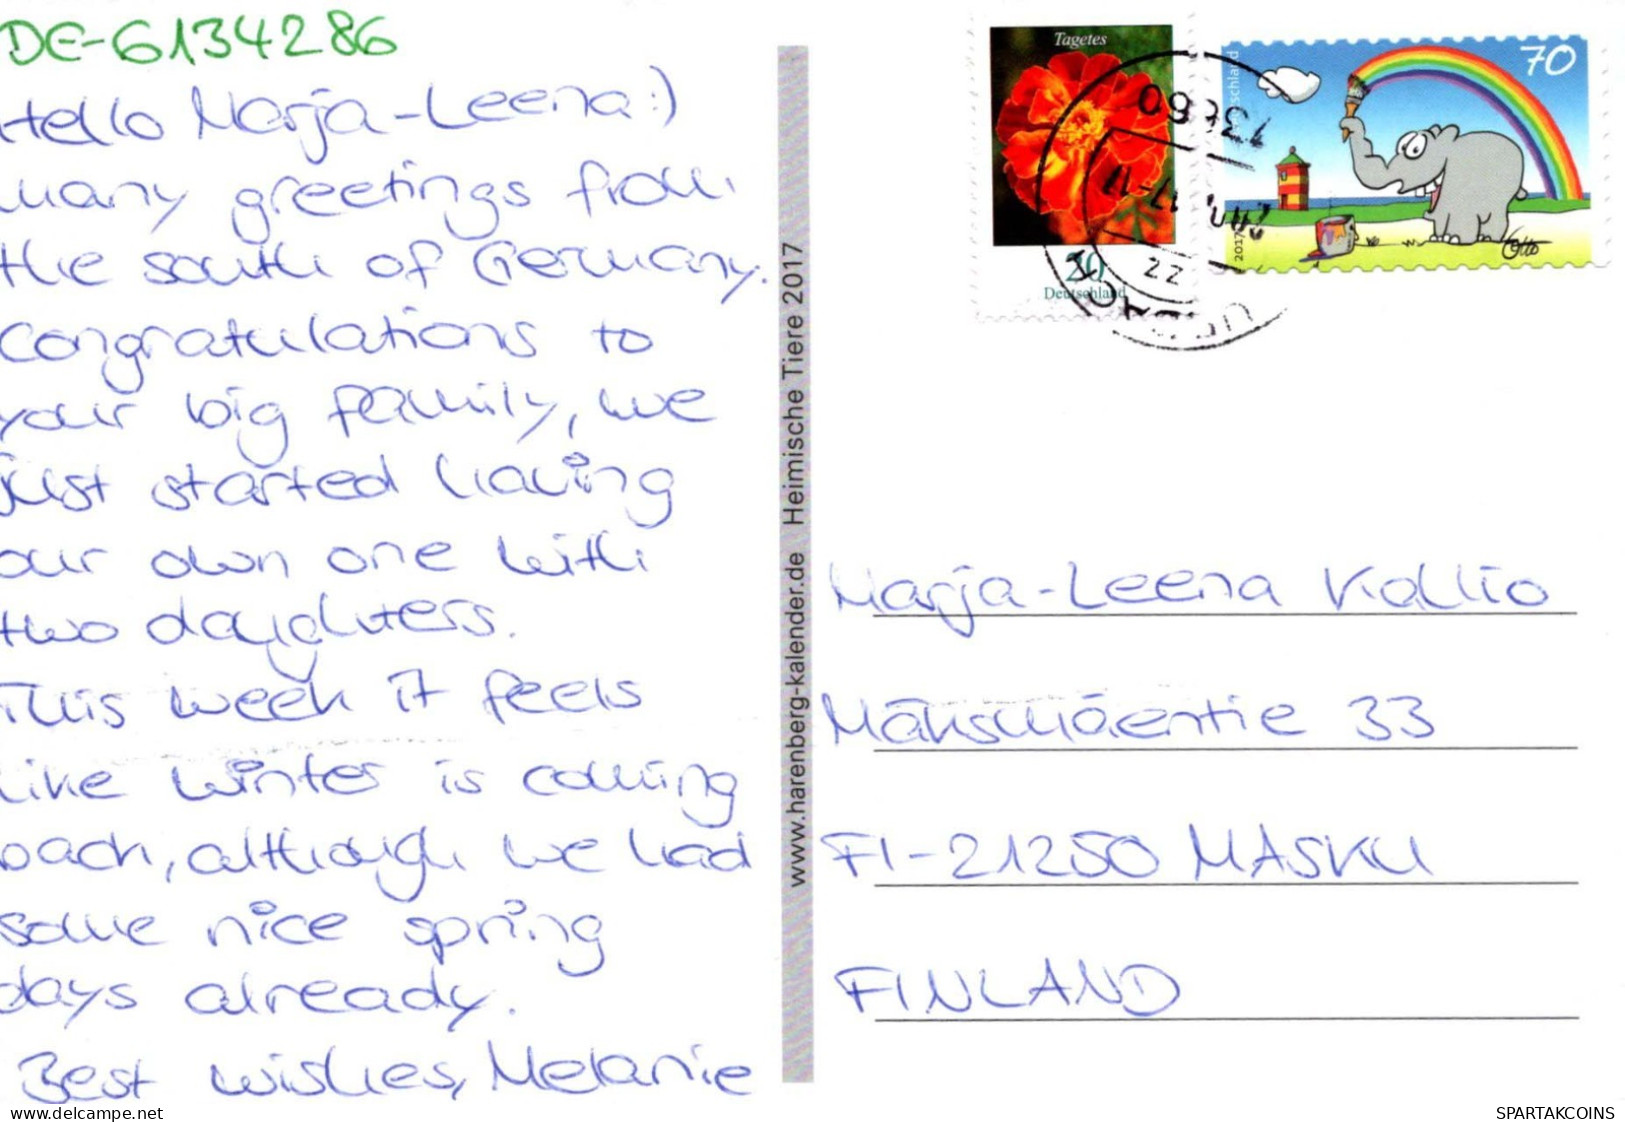 DE-6134286
Hello Marja-Leena:)
many greetings from
the south of Germany.
Congratulations to
your big family, we
just started having
our own one with
two daughters.
This week it feels
like winter is coming
back, although we had
some nice spring
days already.
Best wishes, Melanie
www.harenberg-kalender.de Heimische Tiere 2017
Tagetes
20
Deutschland
70
Deutschland
2017
22
Marja-Leena Kallio
Mäksmäentie 33
FI-21250 MASKU
FINLAND
www.delcampe.net
SPARTAKCOINS